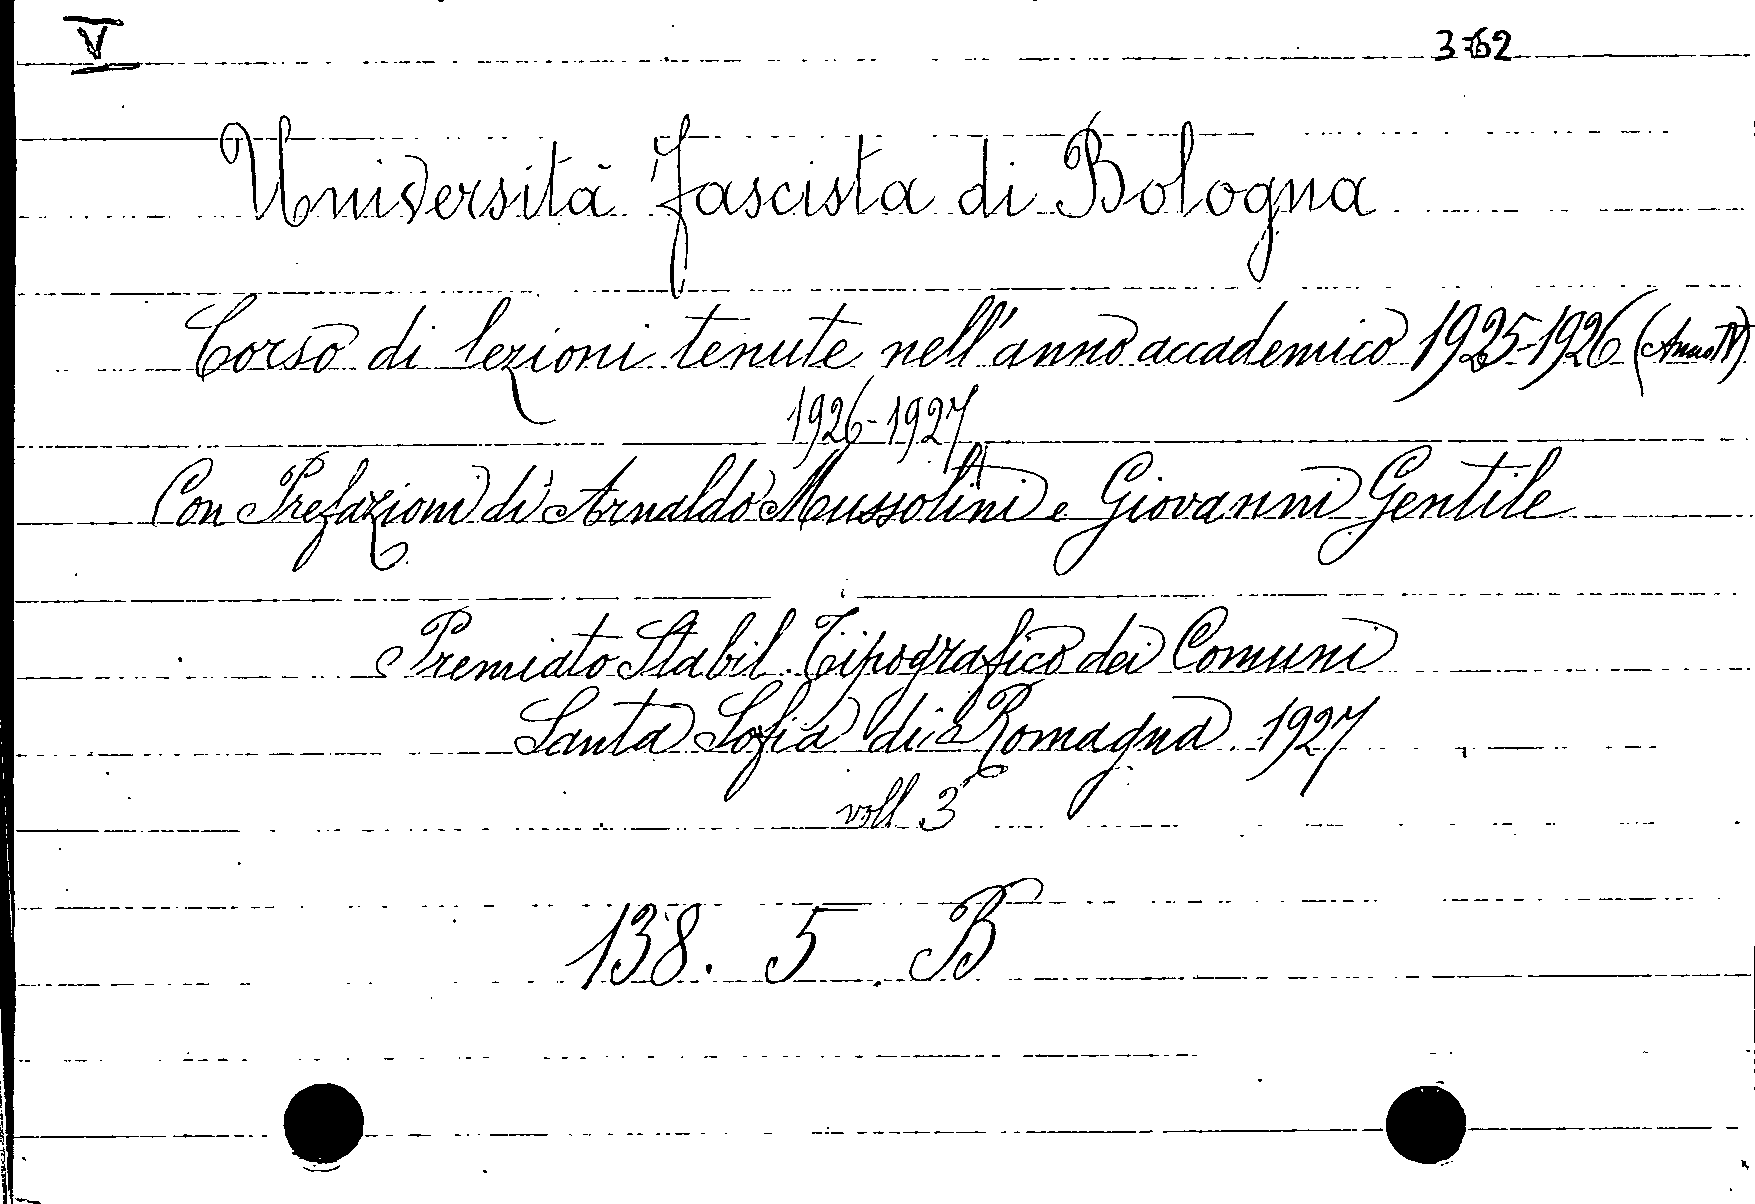 V 362
Università fascista di Bologna
Corso di lezioni tenute nell'anno accademico 1925-1926 (Anno IV)
1926-1927
Con Prefazioni di Arnaldo Mussolini e Giovanni Gentile
Premiato Stabil. Tipografico dei Comuni
Santa Sofia di Romagna 1927
voll 3
138. 5. B